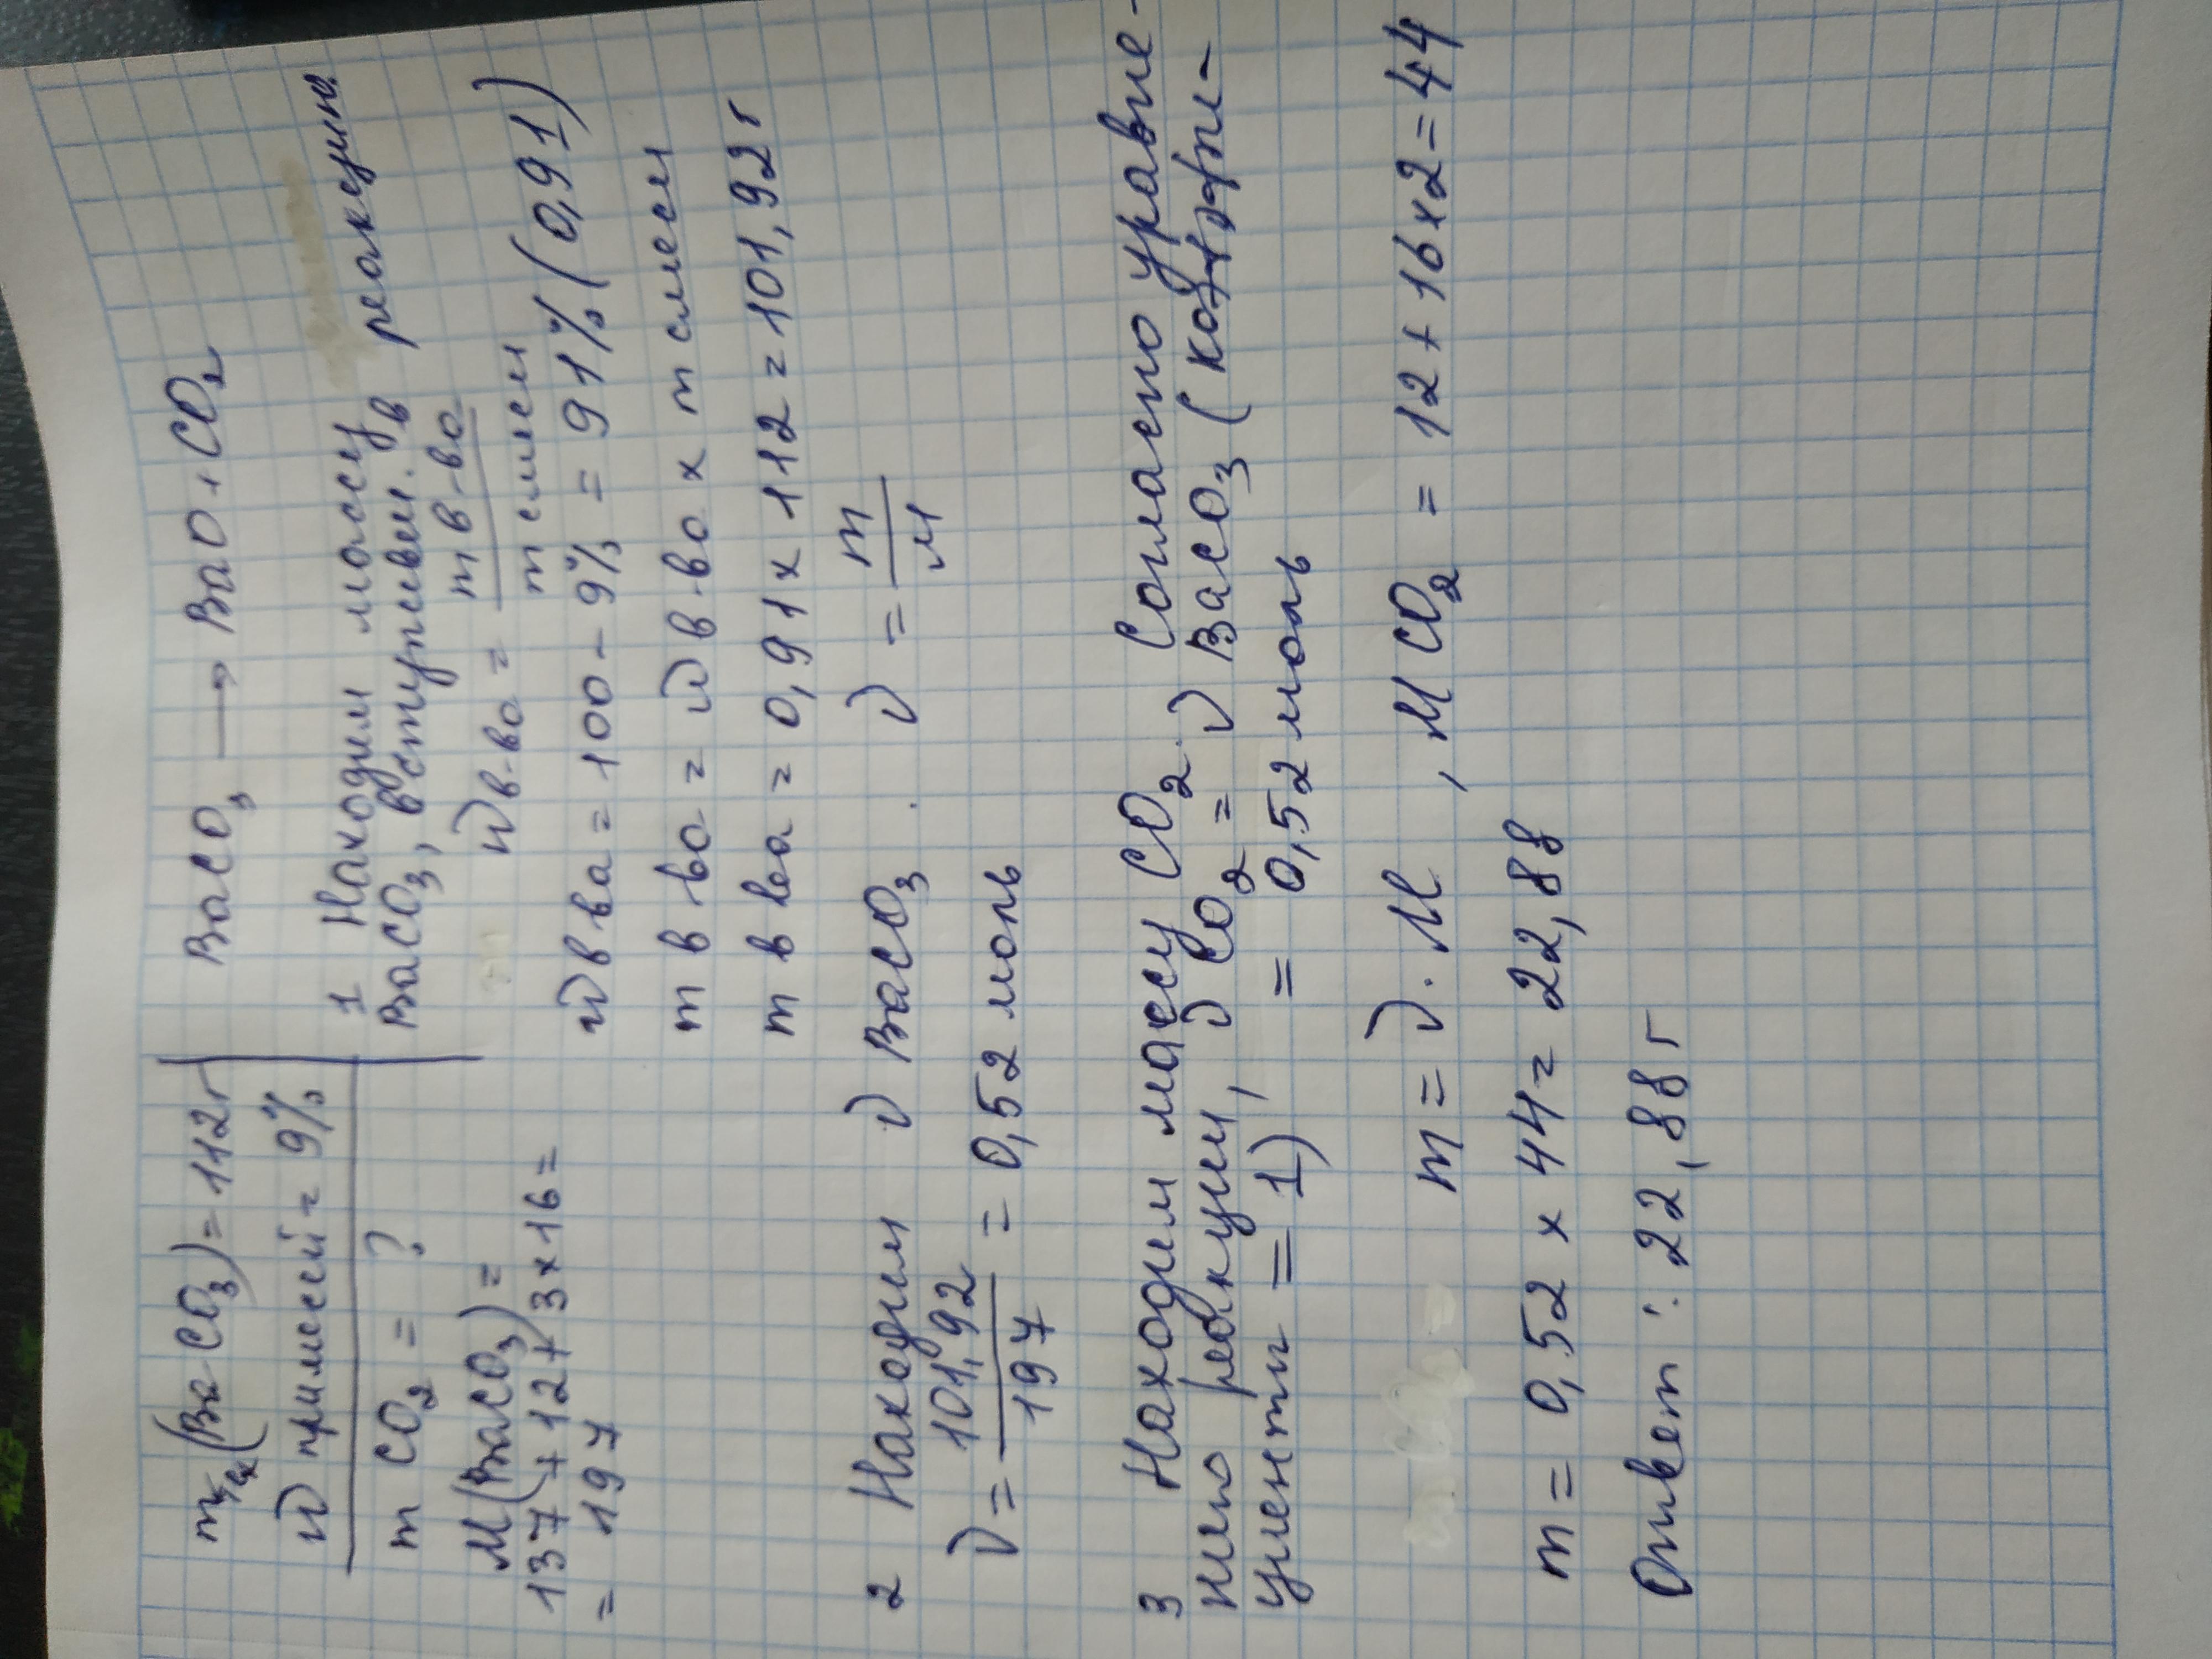 m чаx (BaCO₃) = 112г
w примесей = 9%
m CO₂ = ?
M(BaCO₃) =
137 + 12 + 3x16 =
= 197
BaCO₃ → BaO + CO₂
1 Находим массу
BaCO₃, вступивш. в реакцию
w в-ва = m в-ва / m смеси
w в ва = 100 - 9% = 91% (0,91)
m в-ва = w в-во x m смеси
m в ва = 0,91 x 112 = 101,92 г
2 Находим ν BaCO₃. ν = m / M
ν = 101,92 / 197 = 0,52 моль
3 Находим массу CO₂. Согласно уравне-
нию реакции, ν CO₂ = ν BaCO₃ (коэффи-
циенты = 1) = 0,52 моль
m = ν · M, M CO₂ = 12 + 16 x 2 = 44
m = 0,52 x 44 = 22,88
Ответ: 22,88 г